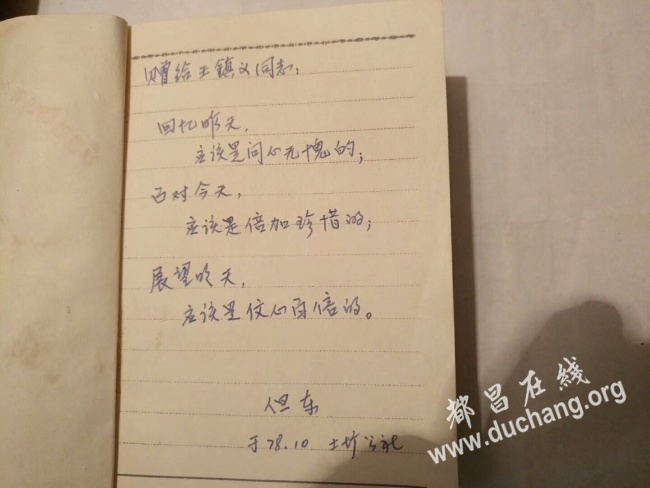 赠给王镇义同志:
回忆昨天,
应该是问心无愧的;
面对今天,
应该是倍加珍惜的;
展望明天,
应该是信心百倍的。
但东
于78.10 土圹公社
都昌在线
www.duchang.org